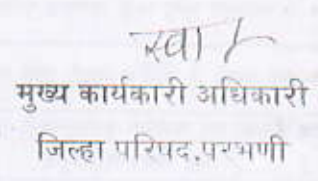 स्वा/-
मुख्य कार्यकारी अधिकारी
जिल्हा परिषद.परभणी